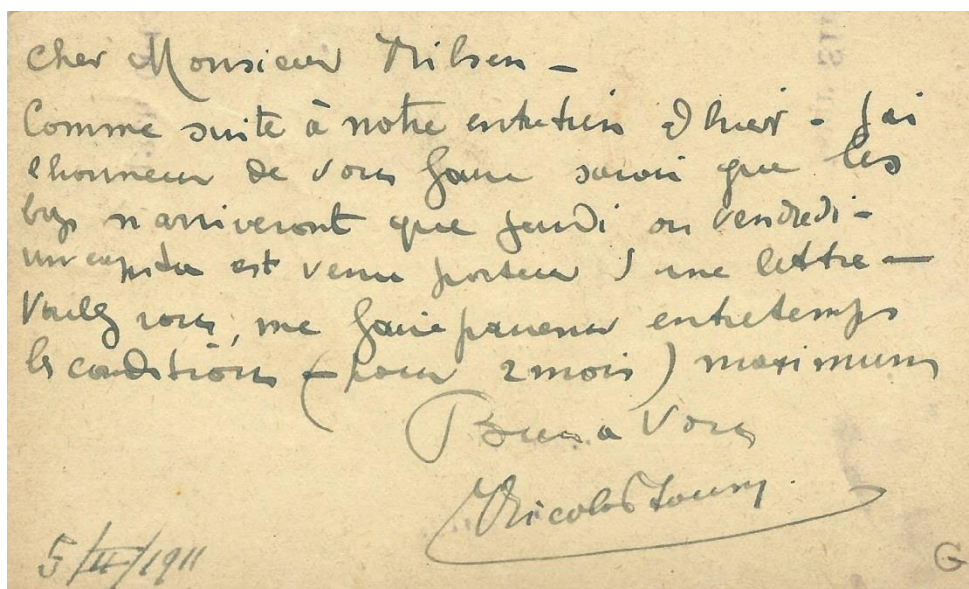 Cher Monsieur Nilsen –
Comme suite à notre entretien d hier – J ai
l honneur de vous faire savoir que les
n arriveront que jeudi ou vendredi –
un est venu porteur d une lettre –
Voulez vous, me faire parvenir entretemps
les conditions – (pour 2 mois) maximum
Bien a Vous
Nicolas
5/II/1911
G